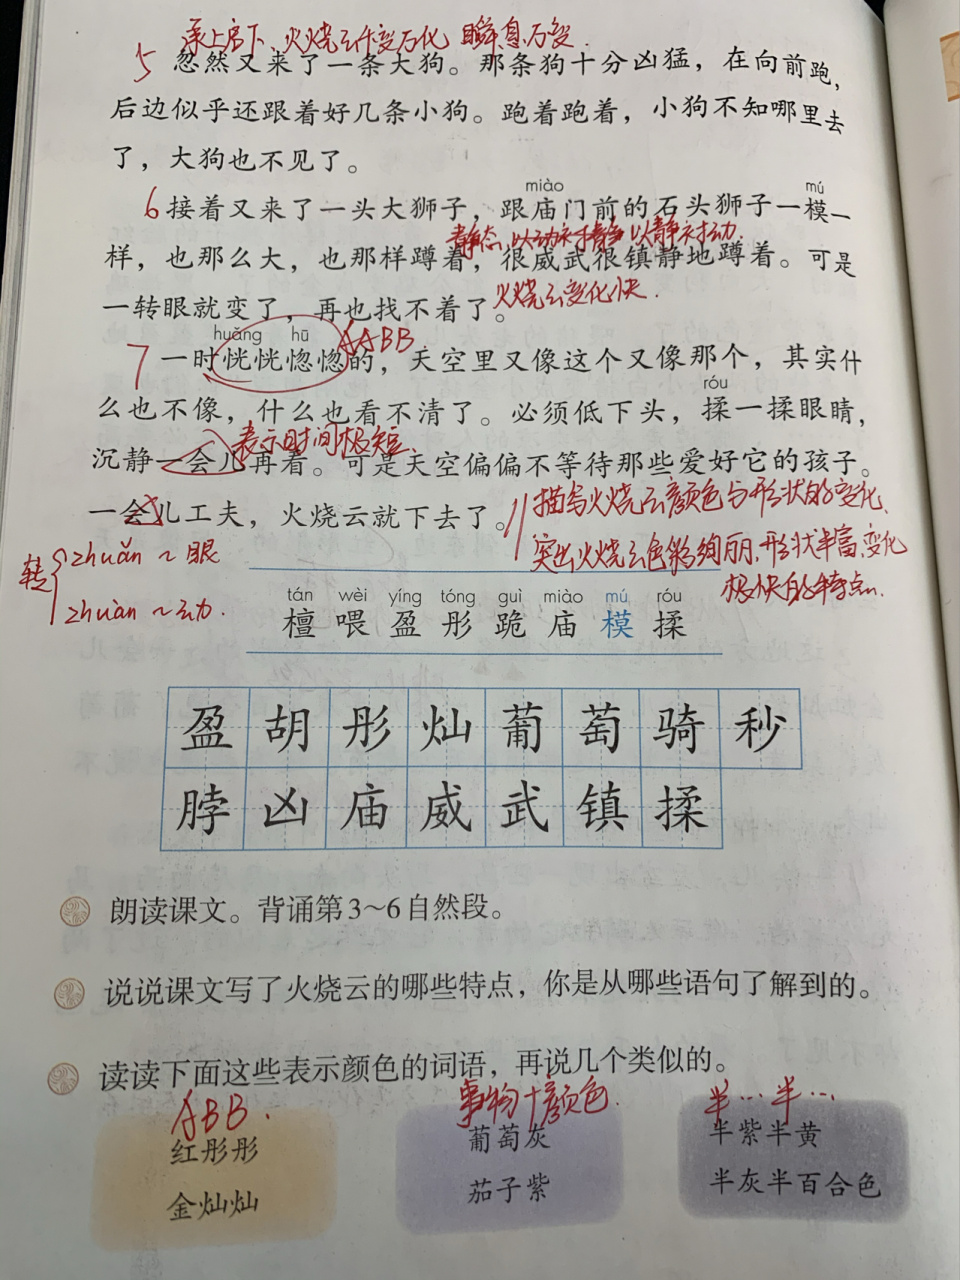 承上启下、火烧云千变万化 瞬息万变.
5 忽然又来了一条大狗。那条狗十分凶猛，在向前跑，
后边似乎还跟着好几条小狗。跑着跑着，小狗不知哪里去
了，大狗也不见了。
miào mú
6 接着又来了一头大狮子，跟庙门前的石头狮子一模一
静态，以动衬静 以静衬动.
样，也那么大，也那样蹲着，很威武很镇静地蹲着。可是
一转眼就变了，再也找不着了。火烧云变化快.
huǎng hū AABB
7 一时恍恍惚惚的，天空里又像这个又像那个，其实什
róu
么也不像，什么也看不清了。必须低下头，揉一揉眼睛，
表示时间极短.
沉静一会儿再看。可是天空偏偏不等待那些爱好它的孩子。
一会儿工夫，火烧云就下去了。
描写火烧云颜色与形状的变化、
突出火烧云色彩绚丽、形状丰富、变化
极快的特点.
转 zhuǎn ~眼
zhuàn ~动.
tán wèi yíng tóng guì miào mú róu
檀 喂 盈 彤 跪 庙 模 揉
盈 胡 彤 灿 葡 萄 骑 秒
脖 凶 庙 威 武 镇 揉
朗读课文。背诵第3~6自然段。
说说课文写了火烧云的哪些特点，你是从哪些语句了解到的。
读读下面这些表示颜色的词语，再说几个类似的。
ABB.
红彤彤
金灿灿
事物+颜色.
葡萄灰
茄子紫
半…半…
半紫半黄
半灰半百合色